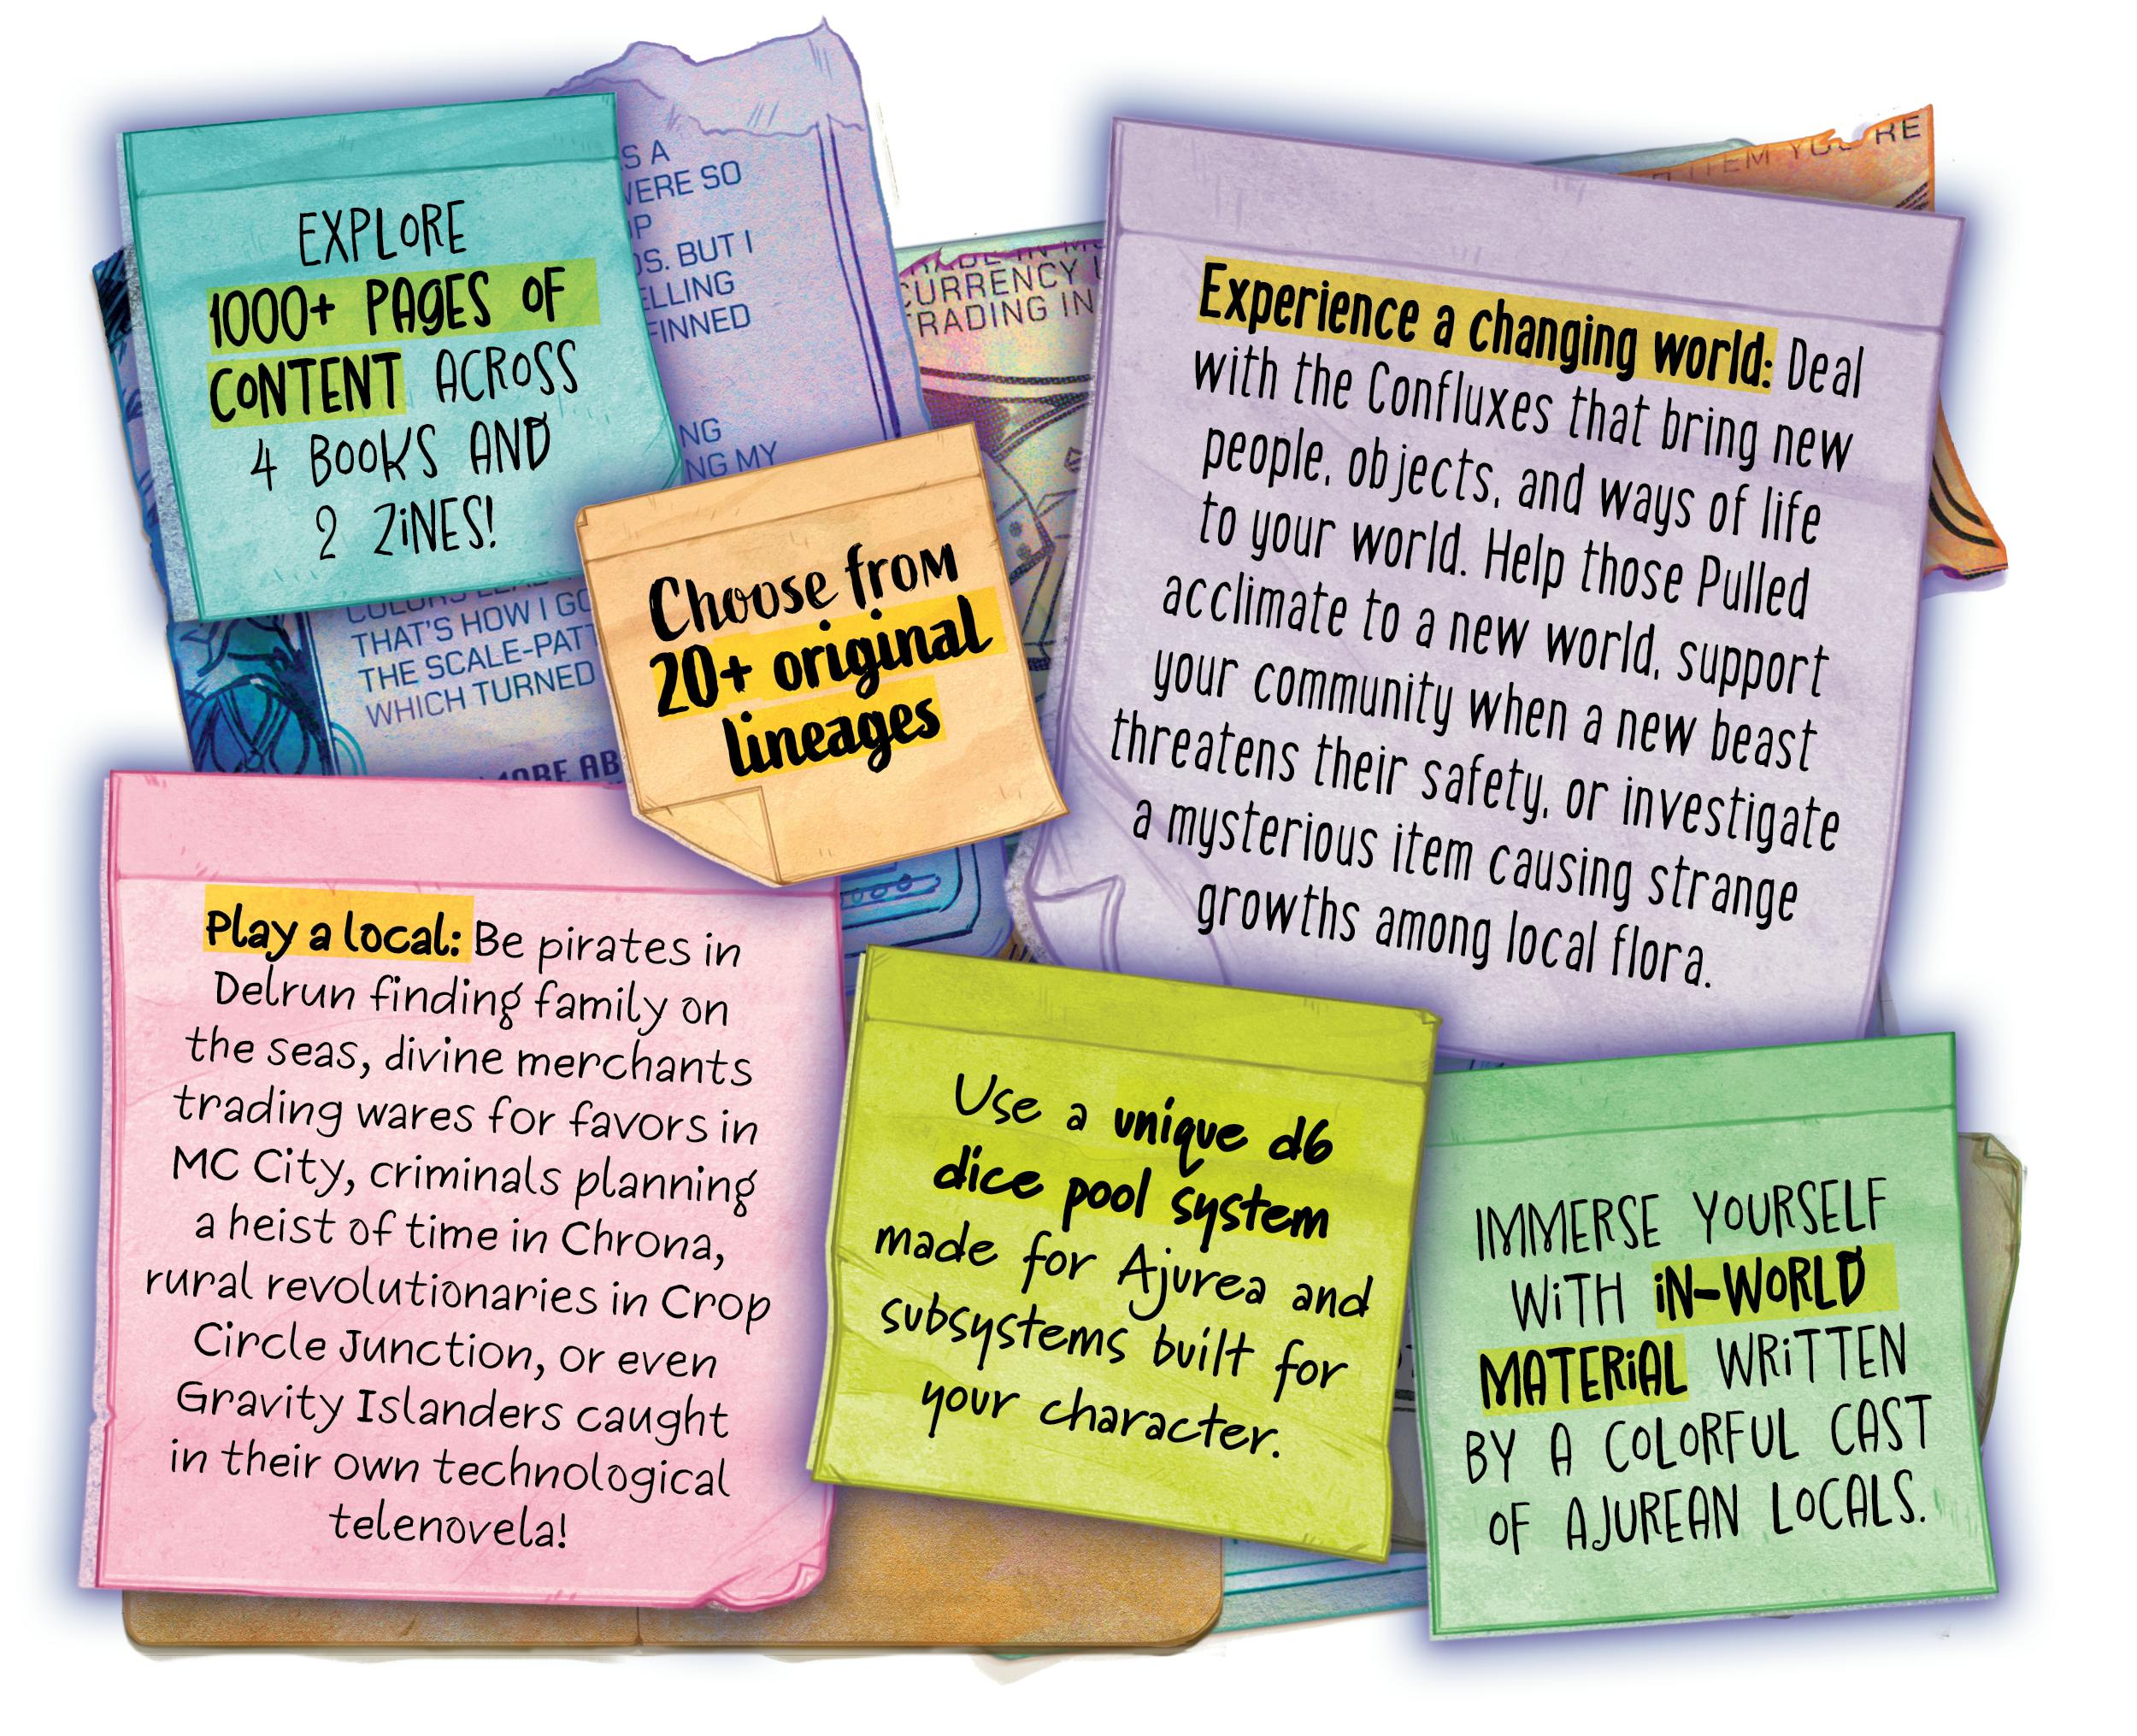 EXPLORE
1000+ PAGES OF
CONTENT ACROSS
4 BOOKS AND
2 ZiNES!
S A
WERE SO
BUT I
ELLING
FINNED
NG
NG MY
CURRENCY
TRADING IN
THAT'S HOW I
THE
WHICH TURNED
MORE
Choose from
20+ original
lineages
RE
Experience a changing world: Deal
with the Confluxes that bring new
people, objects, and ways of life
to your world. Help those Pulled
acclimate to a new world, support
your community when a new beast
threatens their safety, or investigate
a mysterious item causing strange
growths among local flora.
Play a local: Be pirates in
Delrun finding family on
the seas, divine merchants
trading wares for favors in
MC City, criminals planning
a heist of time in Chrona,
rural revolutionaries in Crop
Circle Junction, or even
Gravity Islanders caught
in their own technological
telenovela!
Use a unique d6
dice pool system
made for Ajurea and
subsystems built for
your character.
IMMERSE YOURSELF
WiTH iN-WORLD
MATERiAL WRiTTEN
BY A COLORFUL CAST
OF AJUREAN LOCALS.